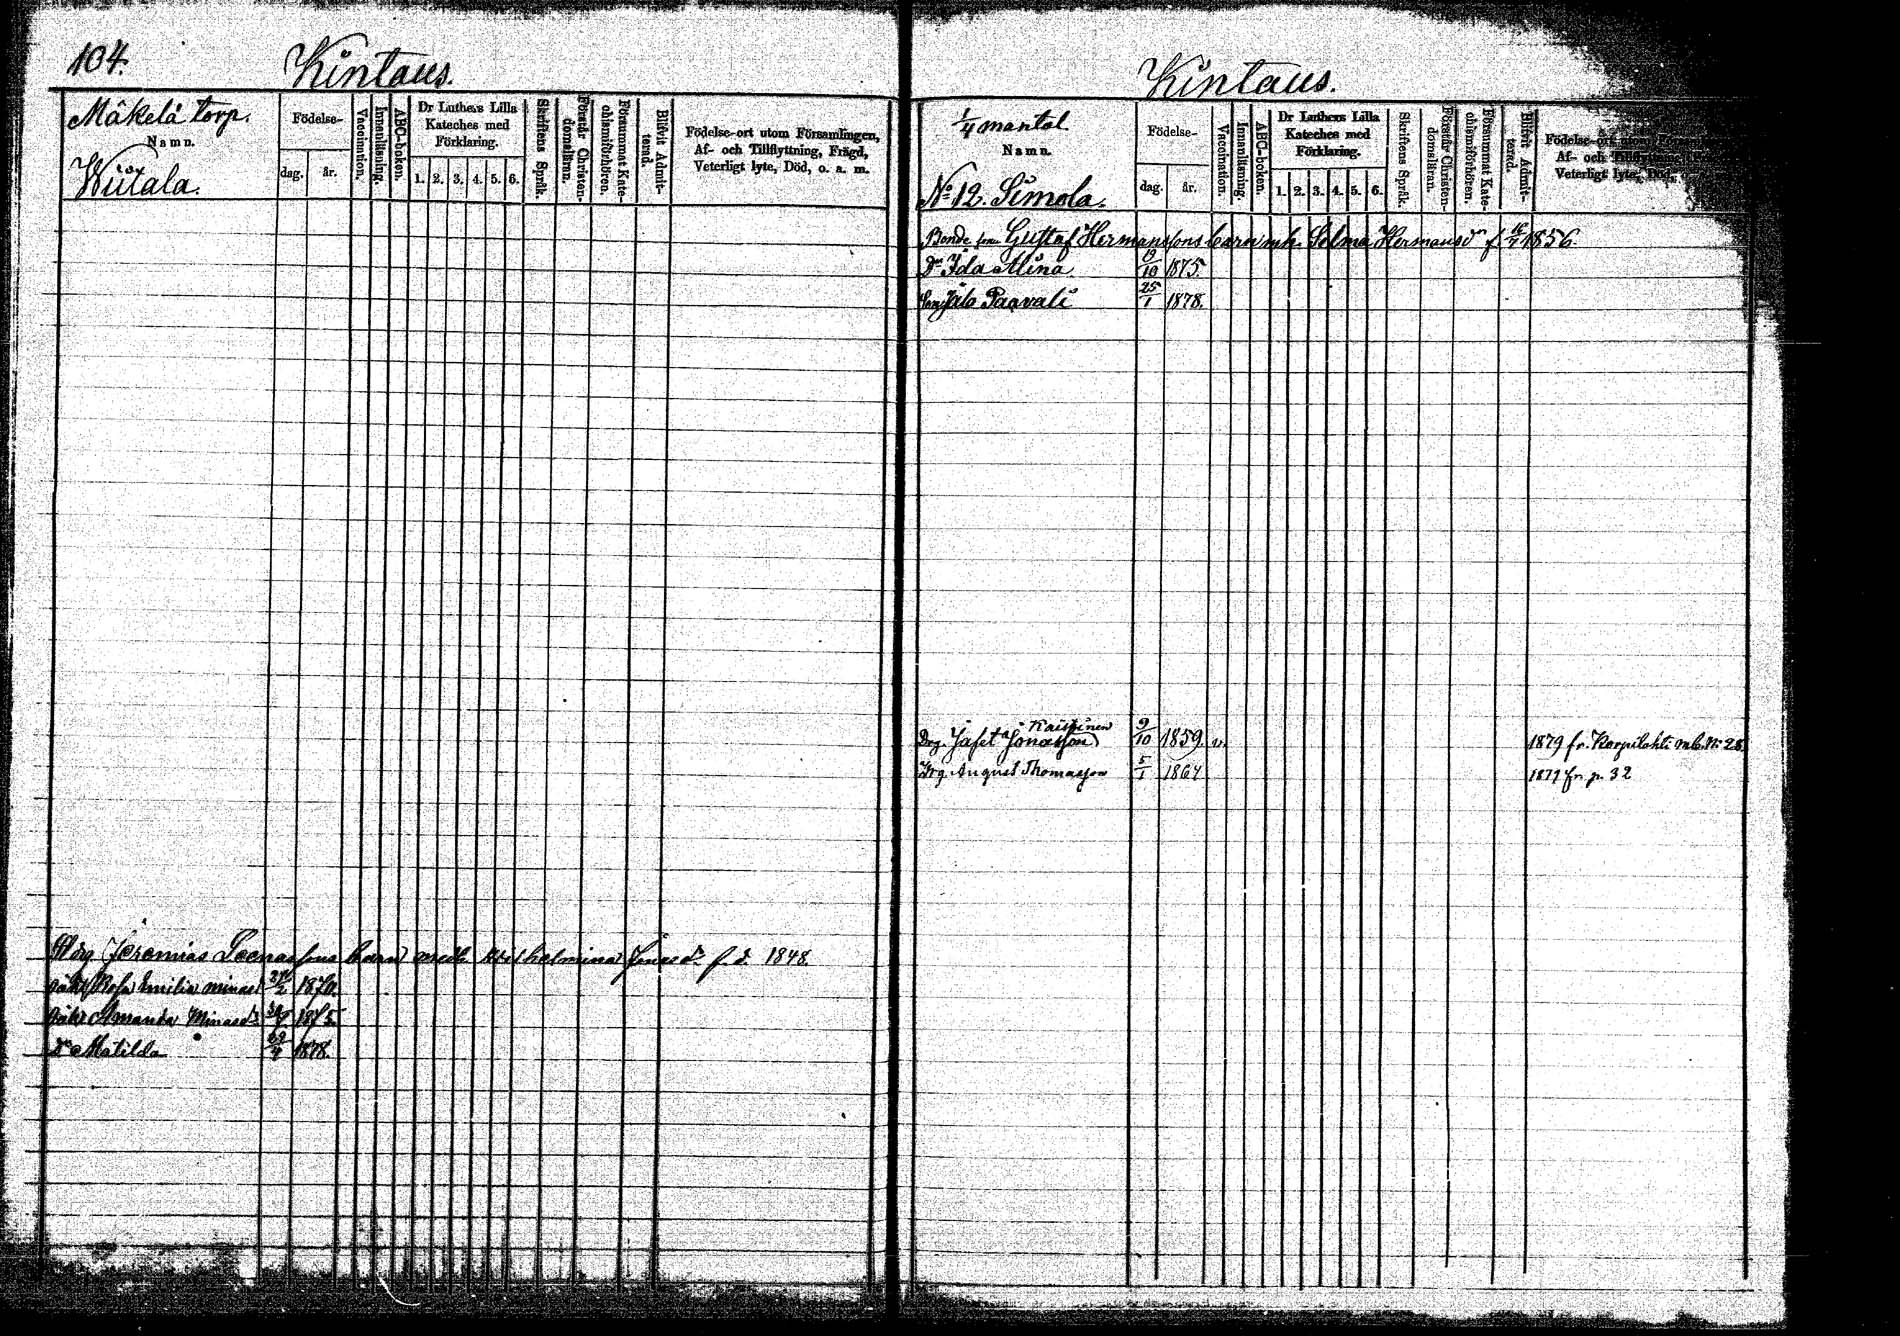 104.
Kintaus.
Mäkelä torp.
Namn.
Wiitala.
Födelse-
dag. år.
Vaccination.
Innanläsning.
ABC-boken.
Dr Luthers Lilla
Kateches med
Förklaring.
1. 2. 3. 4. 5. 6.
Skriftens Språk.
Förstår Christen-
domsläran.
Försummat Kate-
chismiförhören.
Blifvit Admit-
terad.
Födelse-ort utom Församlingen,
Af- och Tillflyttning, Frägd,
Veterligt lyte, Död, o. a. m.
Jeremias barn med Wilhelmina Jonasdr f. d. 1848.
Rosa Emilia 1870.
Amanda Minasdr 1875.
Dr Matilda 29/4 1878.
Kintaus.
1/4 mantal
Namn.
No 12. Simola.
Födelse-
dag. år.
Vaccination.
Innanläsning.
ABC-boken.
Dr Luthers Lilla
Kateches med
Förklaring.
1. 2. 3. 4. 5. 6.
Skriftens Språk.
Förstår Christen-
domsläran.
Försummat Kate-
chismiförhören.
Blifvit Admit-
terad.
Födelse-ort utom
Af- och Tillflyttning,
Veterligt lyte, Död,
Bonde Gustaf Hermanssons barn m. h. Selma Hermansdr f. 1856.
Dr Ida Mina 1875.
Paavali 25/1 1878.
Kaispinen
Drg. Jafet Jonasson 9/10 1859. v. 1879 fr. Korpilahti
Drg. August Thomasson 5/1 1864 1877 fr. p. 32